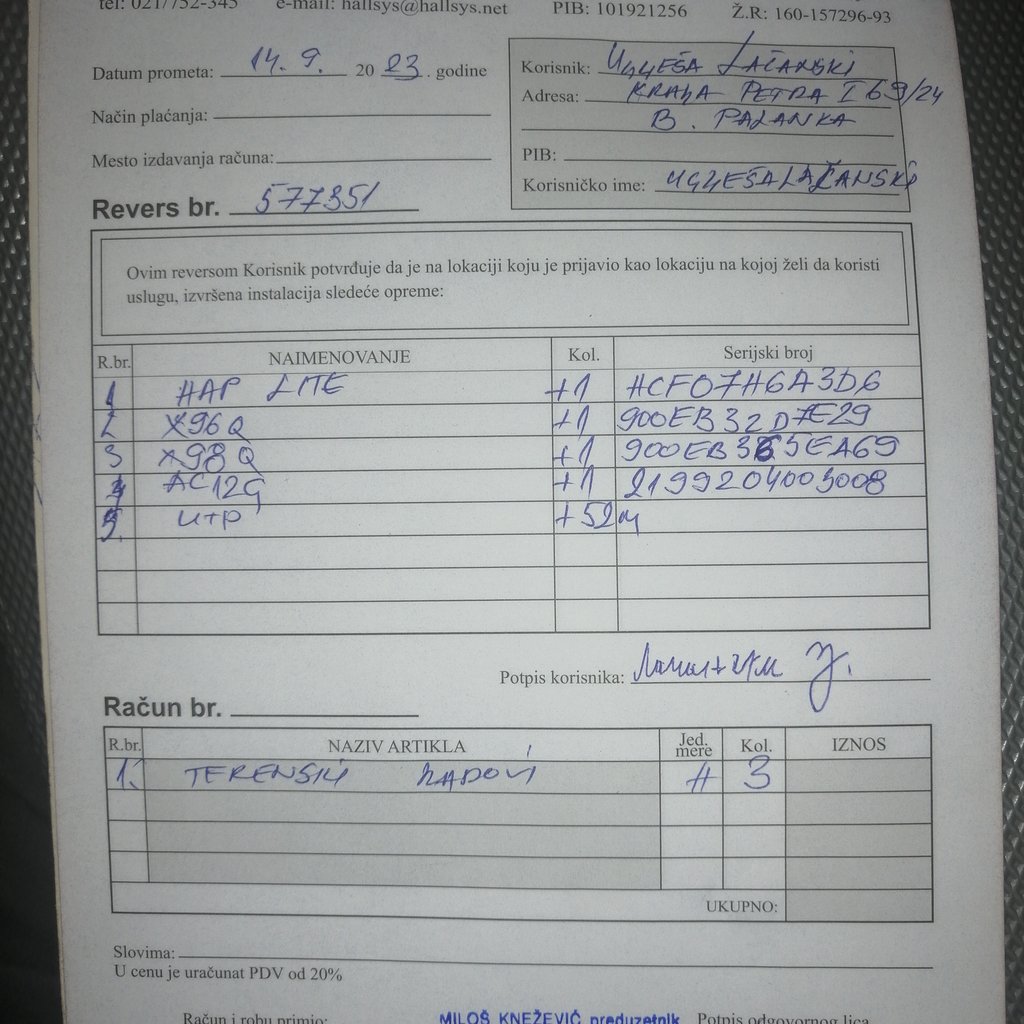 tel: 021/752-345 e-mail: hallsys@hallsys.net PIB: 101921256 Ž.R: 160-157296-93
Datum prometa: 14. 9. 20 23. godine
Način plaćanja:
Mesto izdavanja računa:
Revers br. 577351
Korisnik: UGLJEŠA LAČANSKI
Adresa: KRALJA PETRA I 69/24
B. PALANKA
PIB:
Korisničko ime: UGLJEŠALAČANSKI
Ovim reversom Korisnik potvrđuje da je na lokaciji koju je prijavio kao lokaciju na kojoj želi da koristi
uslugu, izvršena instalacija sledeće opreme:
R.br. NAIMENOVANJE Kol. Serijski broj
1 HAP LITE +1 HCF07H6A3D6
2 X96Q +1 900EB32D7E29
3 X98Q +1 900EB3 5EA69
4 AC12G +1 2199204003008
5. UTP +52m
Potpis korisnika:
Račun br.
R.br. NAZIV ARTIKLA Jed. mere Kol. IZNOS
1. TERENSKI RADOVI H 3
UKUPNO:
Slovima:
U cenu je uračunat PDV od 20%
Račun i robu primio: MILOŠ KNEŽEVIĆ preduzetnik Potpis odgovornog lica